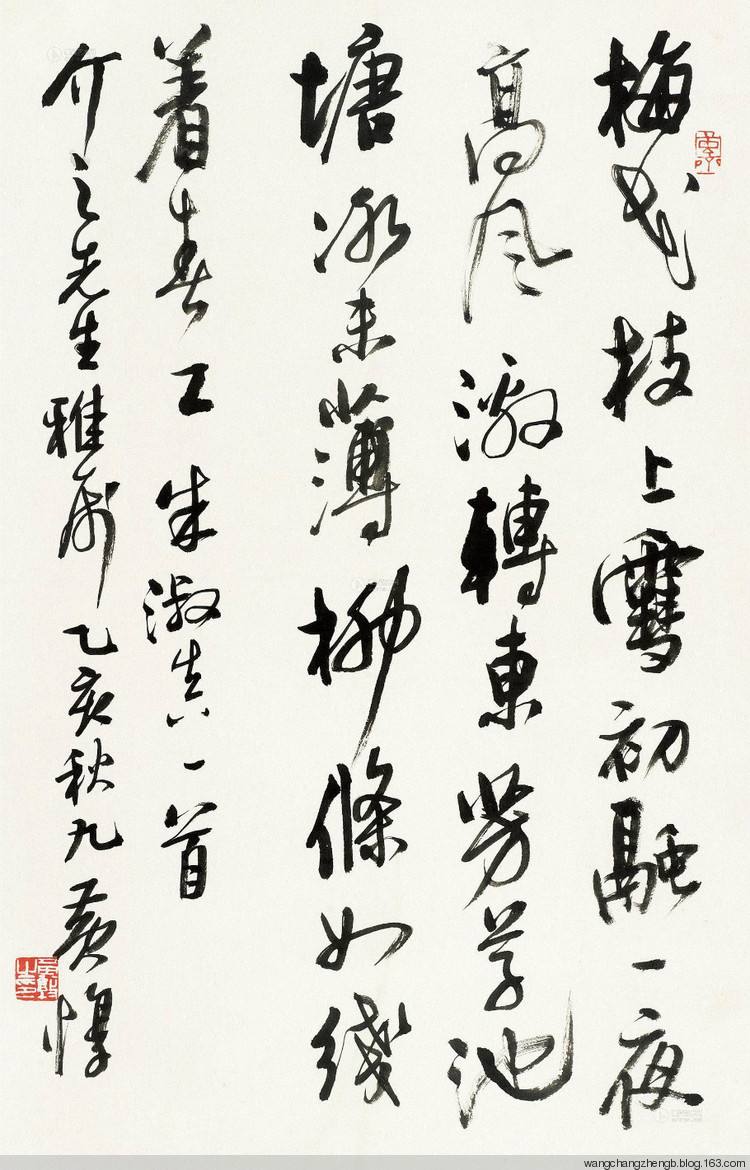 梅花枝上雪初融一夜
高风激轉東芳草池
塘冰未薄柳條如綫
着春工朱淑真一首
介之先生雅属乙亥秋九黄惇
wangchangzhengb.blog.163.com